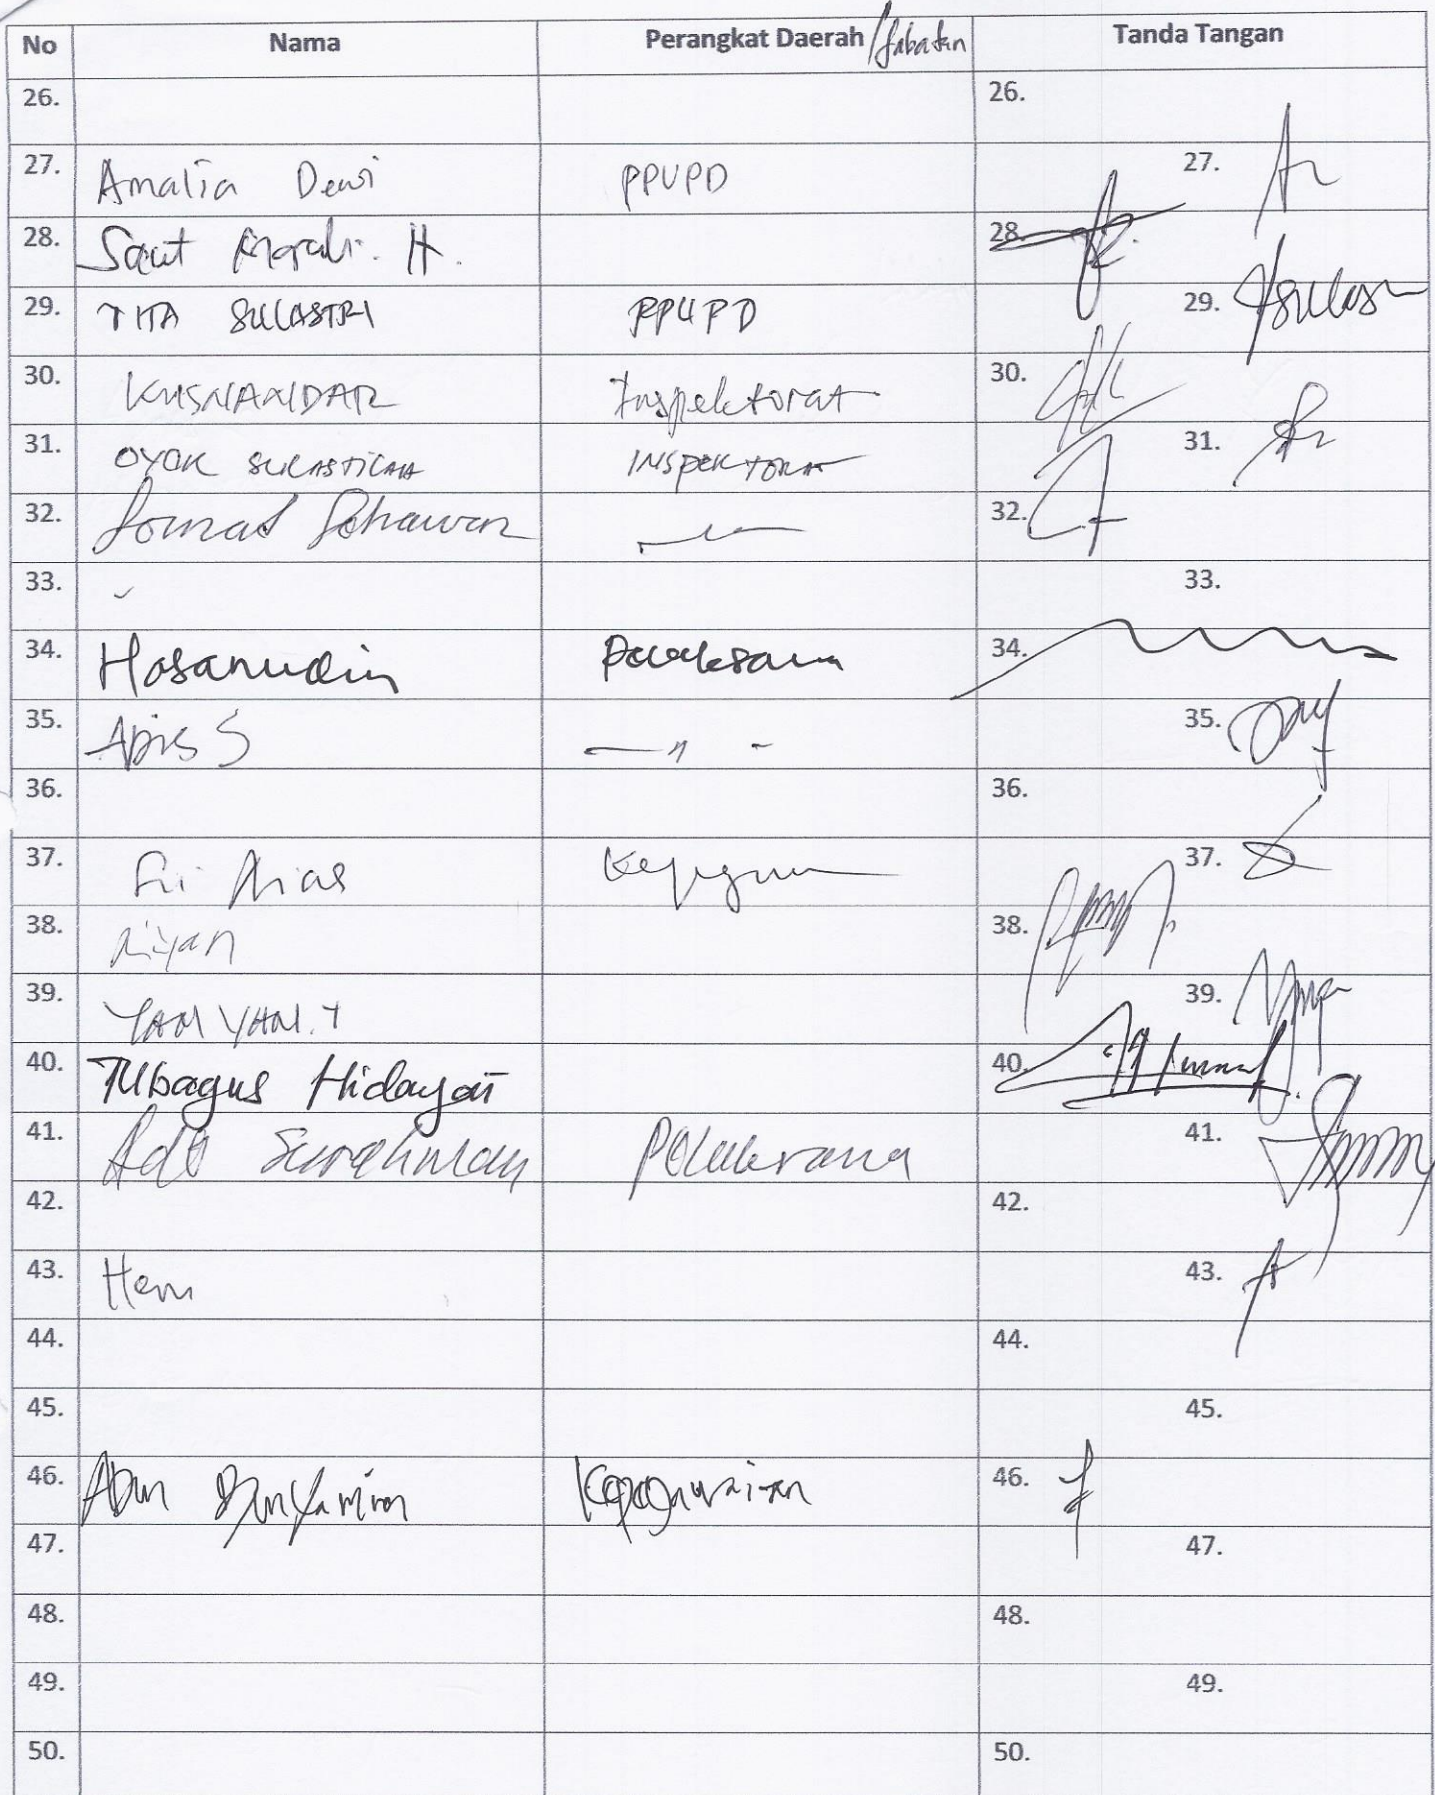 No Nama Perangkat Daerah /Jabatan Tanda Tangan
26. 26.
27. Amalia Dewi PPUPD 27.
28. Saut H. 28.
29. TITA SULASTRI PPUPD 29.
30. KUSNANDAR Inspektorat 30.
31. OYOK SUKASTILAH INSPEKTORAT 31.
32. 32.
33. 33.
34. Hasanudin Pelaksana 34.
35. Apis S — 〃 - 35.
36. 36.
37. Sri 37.
38. Riyan 38.
39. YAN YAN. T 39.
40. Tubagus Hidayat 40.
41. Ade Surahman Pelaksana 41.
42. 42.
43. Heru 43.
44. 44.
45. 45.
46. Benyamin Kepegawaian 46.
47. 47.
48. 48.
49. 49.
50. 50.